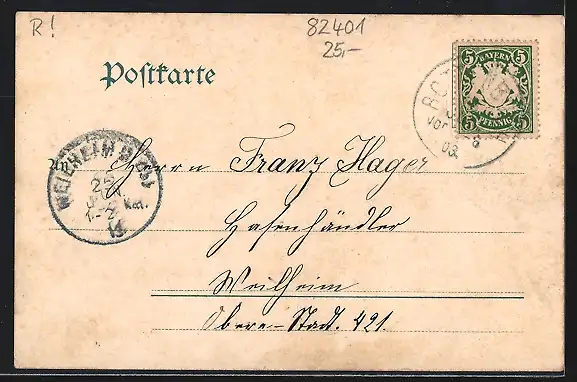 R!
82401
25,-
Postkarte
5 BAYERN 5
5 PFENNIG 5
VOR
03
WEILHEIM
25
1-2 Nm.
An Herrn Franz Hager
Hafenhändler
Weilheim
Obere-Stadt. 421.